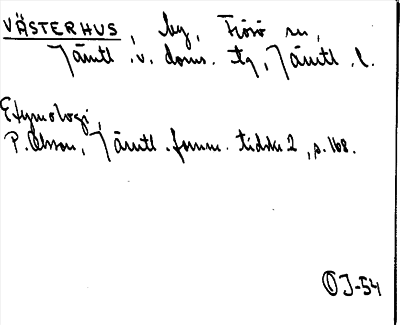 VÄSTERHUS, by, Frösö sn,
Jämtl. v. doms. tg, Jämtl. l.
Etymologi,
P. Olsson, Jämtl. fornm. tidskr. 2, s. 168.
OJ-54